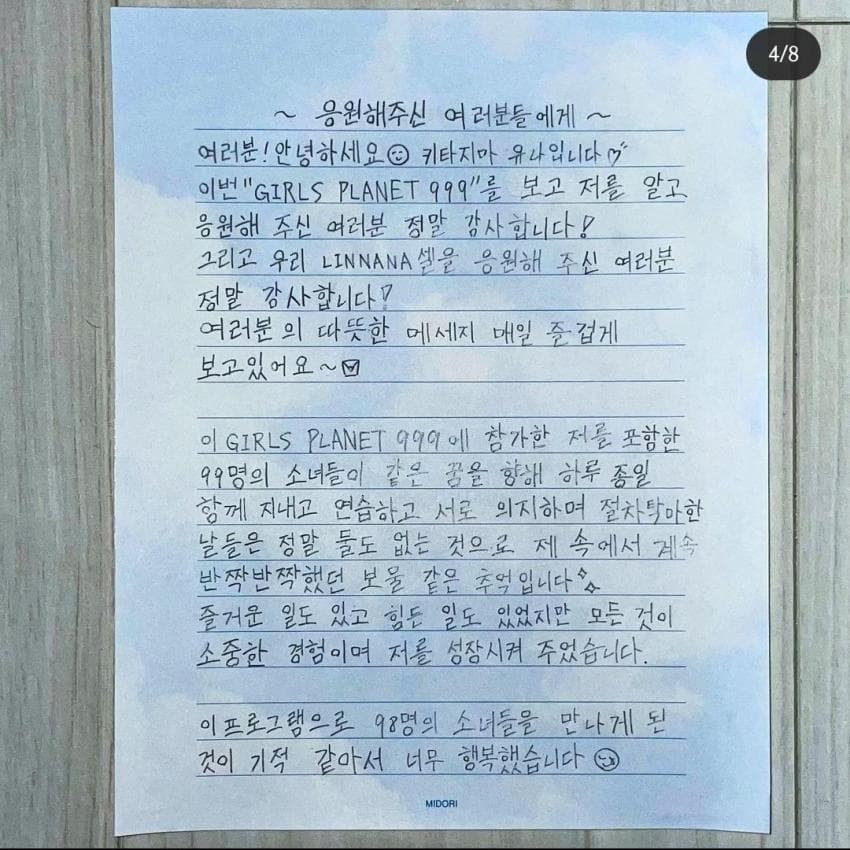 4/8
~ 응원해주신 여러분들에게 ~
여러분! 안녕하세요 키타지마 유나입니다
이번 "GIRLS PLANET 999"를 보고 저를 알고
응원해 주신 여러분 정말 감사합니다!
그리고 우리 LINNANA셀을 응원해 주신 여러분
정말 감사합니다!
여러분의 따뜻한 메세지 매일 즐겁게
보고있어요~
이 GIRLS PLANET 999에 참가한 저를 포함한
99명의 소녀들이 같은 꿈을 향해 하루 종일
함께 지내고 연습하고 서로 의지하며 절차탁마한
날들은 정말 둘도 없는 것으로 제 속에서 계속
반짝반짝했던 보물 같은 추억입니다
즐거운 일도 있고 힘든 일도 있었지만 모든 것이
소중한 경험이며 저를 성장시켜 주었습니다.
이 프로그램으로 98명의 소녀들을 만나게 된
것이 기적 같아서 너무 행복했습니다
MIDORI